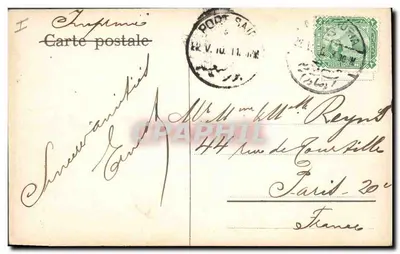 Imprimé
Carte postale
PORT SAID
22.V.10.11
Sincères amitiés
Ernest
Mr Mme Melle Reynd
44 rue de Tourtille
Paris 20e
France
CPARHIL.COM